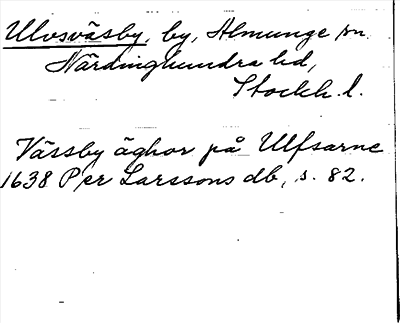 Ulvsväsby, by, Almunge sn.
Närdinghundra hd,
Stockh. l.
Vässby äghor på Ulfsarne
1638 Per Larssons db, s. 82.